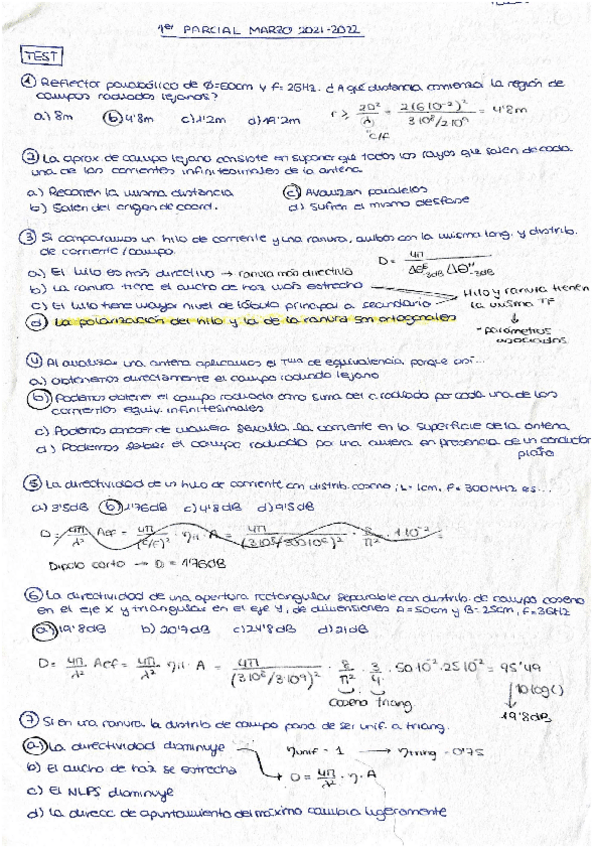 1er PARCIAL MARZO 2021-2022
TEST
① Reflector parabólico de Ø=60cm y f= 2GHz. ¿A qué distancia comienza la región de
campos radiados lejanos?
a) 8m b) 4'8m c) 1'2m d) 19'2m
r ≥ 2D²/λ = 2(6·10⁻²)²/3·10⁸/2·10⁹ = 4'8m
c/f
② La aprox de campo lejano consiste en suponer que todos los rayos que salen de cada
una de las corrientes infinitesimales de la antena
a) Recorren la misma distancia c) Avanzan paralelos
b) Salen del origen de coord. d) Sufren el mismo desfase
③ Si comparamos un hilo de corriente y una ranura, ambos con la misma long. y distrib.
de corriente/campo.
a) El hilo es más directivo → ranura más directiva
D = 4π/Δθ'-3dB Δθ''-3dB
b) La ranura tiene el ancho de haz más estrecho
c) El hilo tiene mayor nivel de lóbulo principal a secundario
Hilo y ranura tienen
la misma TF
↓
d) La polarización del hilo y la de la ranura son ortogonales
parámetros
asociados
④ Al analizar una antena aplicamos el Tma de equivalencia, porque así...
a) Obtenemos directamente el campo radiado lejano
b) Podemos obtener el campo radiado como suma del c. radiado por cada una de las
corrientes equiv. infinitesimales
c) Podemos conocer de manera sencilla la corriente en la superficie de la antena
d) Podemos saber el campo radiado por una antena en presencia de un conductor
plano
⑤ La directividad de un hilo de corriente con distrib. coseno, L= 1cm, f= 300MHz es...
a) 3'5dB b) 1'76dB c) 4'8dB d) 9'5dB
D = 4π/λ² Aef = 4π/(c/f)² · ηil · A = 4π/(3·10⁸/300·10⁶)² · 8/π² · 1·10⁻² =
Dipolo corto → D = 1'76dB
⑥ La directividad de una apertura rectangular separable con distrib. de campo coseno
en el eje X y triangular en el eje Y, de dimensiones A=50cm y B=25cm, f=3GHz
a) 19'8dB b) 20'9dB c) 24'8dB d) 21dB
D = 4π/λ² Aef = 4π/λ² · ηil · A = 4π/(3·10⁸/3·10⁹)² · 8/π² · 3/4 · 50·10⁻² · 25·10⁻² = 95'49
coseno triang
↓ 10log()
19'8dB
⑦ Si en una ranura la distrib de campo pasa de ser unif. a triang.
a) La directividad disminuye
ηunif = 1 → ηtriang = 0'75
b) El ancho de haz se estrecha
D = 4π/λ² · η · A
c) El NLPS disminuye
d) La direcc de apuntamiento del máximo cambia ligeramente